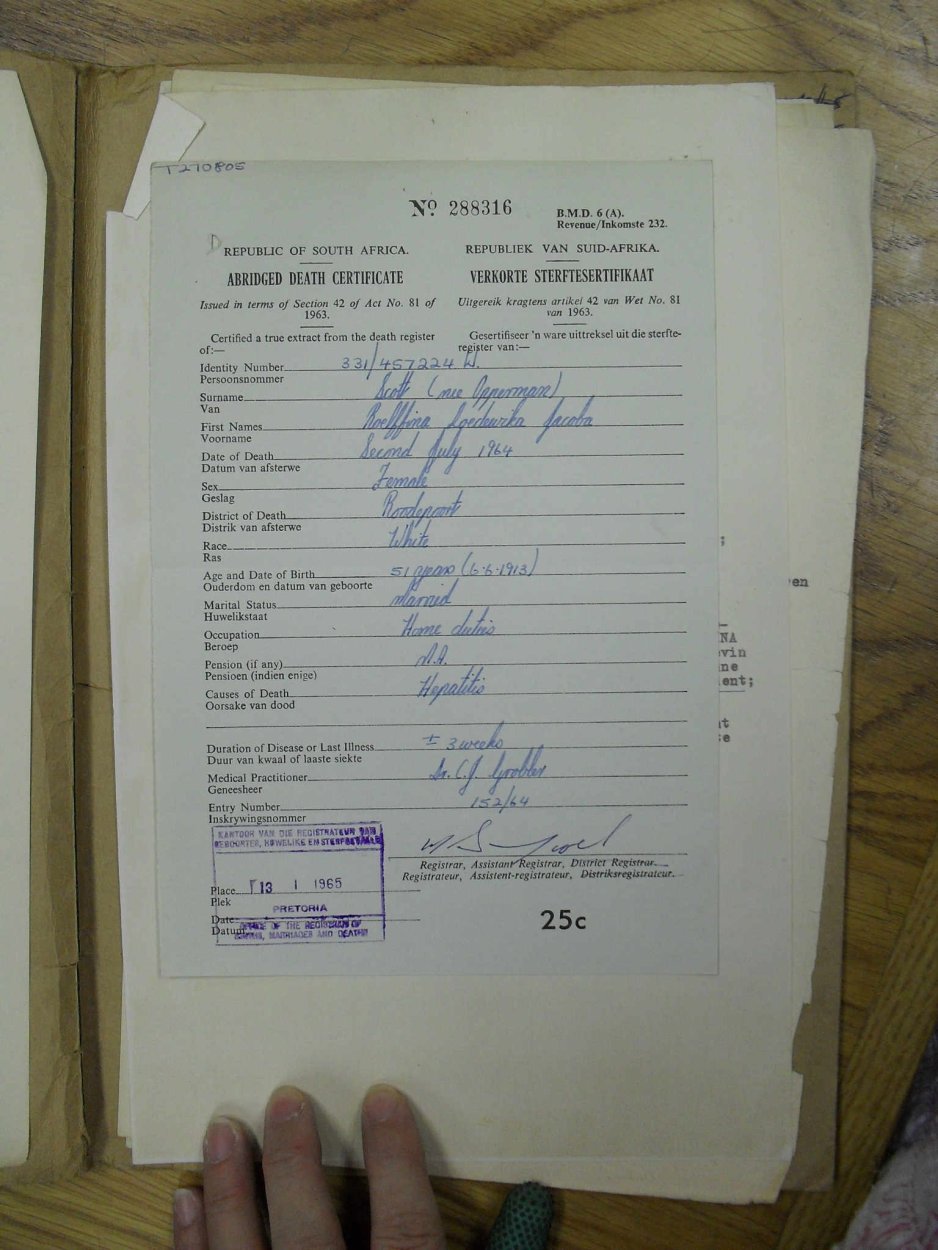 T270805
Nº 288316
B.M.D. 6 (A).
Revenue/Inkomste 232.
REPUBLIC OF SOUTH AFRICA.
REPUBLIEK VAN SUID-AFRIKA.
ABRIDGED DEATH CERTIFICATE
VERKORTE STERFTESERTIFIKAAT
Issued in terms of Section 42 of Act No. 81 of
1963.
Uitgereik kragtens artikel 42 van Wet No. 81
van 1963.
Certified a true extract from the death register
of:—
Gesertifiseer 'n ware uittreksel uit die sterfte-
register van:—
Identity Number 331/457224 W.
Persoonsnommer
Surname Scott (nee Opperman)
Van
First Names Roelffina Loedewika Jacoba
Voorname
Date of Death Second July 1964
Datum van afsterwe
Sex Female
Geslag
District of Death Roodepoort
Distrik van afsterwe
Race White
Ras
Age and Date of Birth 51 years (6.6.1913)
Ouderdom en datum van geboorte
Marital Status Married
Huwelikstaat
Occupation Home duties
Beroep
Pension (if any) N.A.
Pensioen (indien enige)
Causes of Death Hepatitis
Oorsake van dood
Duration of Disease or Last Illness ± 3 weeks
Duur van kwaal of laaste siekte
Medical Practitioner Dr. C.J. Grobler
Geneesheer
Entry Number 152/64
Inskrywingsnommer
KANTOOR VAN DIE REGISTRATEUR VAN
GEBOORTES, HUWELIKE EN STERFGEVALLE
Registrar, Assistant Registrar, District Registrar.
Registrateur, Assistent-registrateur, Distriksregistrateur.
Place
Plek
13 1 1965
PRETORIA
Date
Datum
OFFICE OF THE REGISTRAR OF
BIRTHS, MARRIAGES AND DEATHS
25c
;
en
NA
evin
ne
ent;